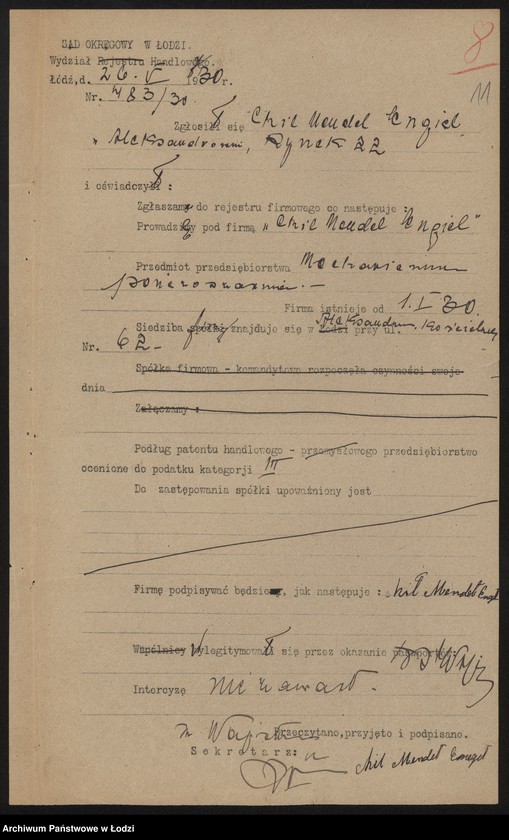 8
11
SĄD OKRĘGOWY W ŁODZI.
Wydział Rejestru Handlowego.
Łódź, d. 26. V 1930 r.
Nr. 783/30.
Zgłosił się Chil Mendel Engiel
w Aleksandrowie, Rynek 22
i oświadczył :
Zgłaszam do rejestru firmowego co następuje :
Prowadzę pod firmą "Chil Mendel Engiel"
Przedmiot przedsiębiorstwa
Firma istnieje od 1.I 30.
Siedziba spółki firmy znajduje się w Łodzi przy ul. Aleksandrow. Kościelnej
Nr. 62 -
Spółka firmowa - komandytowa rozpoczęła czynności swoje
dnia
Załączamy :
Podług patentu handlowego - przemysłowego przedsiębiorstwo
ocenione do podatku kategorji III
Do zastępowania spółki upoważniony jest
Firmę podpisywać będzie, jak następuje : Chil Mendel Engel
Wspólnicy Wylegitymował się przez okazanie paszportów:
Intercyzę nie zawarł.
Przeczytano, przyjęto i podpisano.
Sekretarz:
Chil Mendel Engel
Archiwum Państwowe w Łodzi